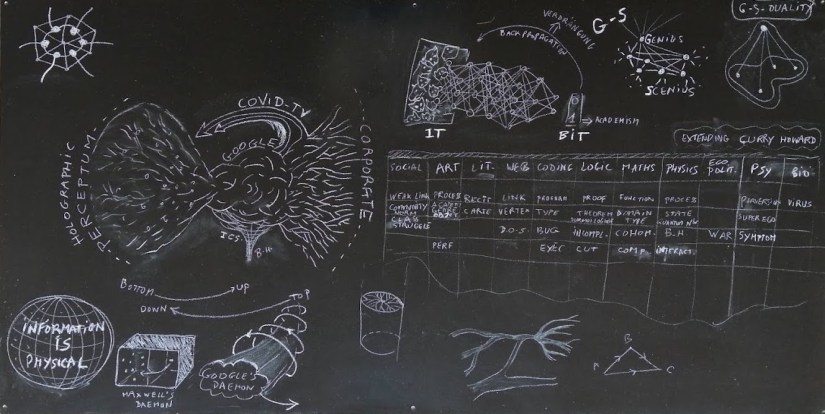 G-S-DUALITY
VERDRÄNGUNG
BACKPROPAGATION
G-S
GENIUS
SCENIUS
IT
BIT
ACADEMISM
COVID-TV
GOOGLE
HOLOGRAPHIC
PERCEPTUM
CORPORATE
I.C.S.
B.H.
EXTENDING CURRY HOWARD
SOCIAL ART LIT. WEB CODING LOGIC MATHS PHYSICS ECO POLIT. PSY BIO
WEAK LINK PROCESS LINK PROGRAM PROOF FUNCTION PROCES VIRUS
COMMODITY OBJECT CARTE VERTEX TYPE THEOREM DOMAIN STATE SUPEREGO
TYPE
CLASS STRUGGLE D.O.S. BUG INCOMPL. COHOM. B.H WAR SYMPTOM
PERF EXEC CUT COMP. INTERACT
BOTTOM UP
DOWN TOP
INFORMATION
IS
PHYSICAL
MAXWELL'S
DAEMON
GOOGLE'S
DAEMON
B
A C